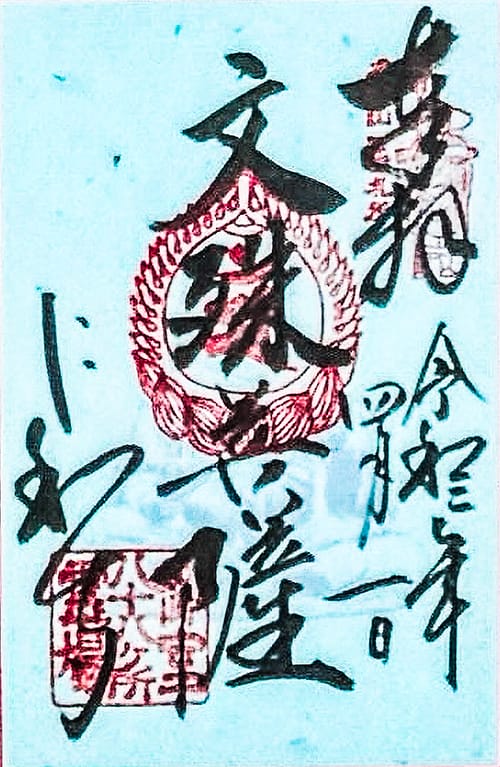 奉拝
令和三年
四月一日
文殊菩薩
仁和寺